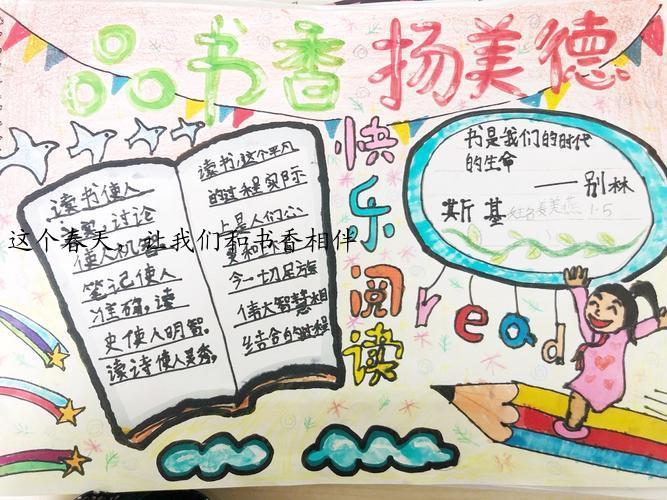 品书香 扬美德
这个春天,让我们和书香相伴
读书使人
充实,讨论
使人机智
笔记使人
准确,读
史使人明智。
读诗使人灵秀。
读书,这个平凡
的过程,实际
上是人们心
灵和
今一切民族
伟大智慧相
结合的过程
快乐阅读
书是我们的时代
的生命
——别林
斯基
1.5
read